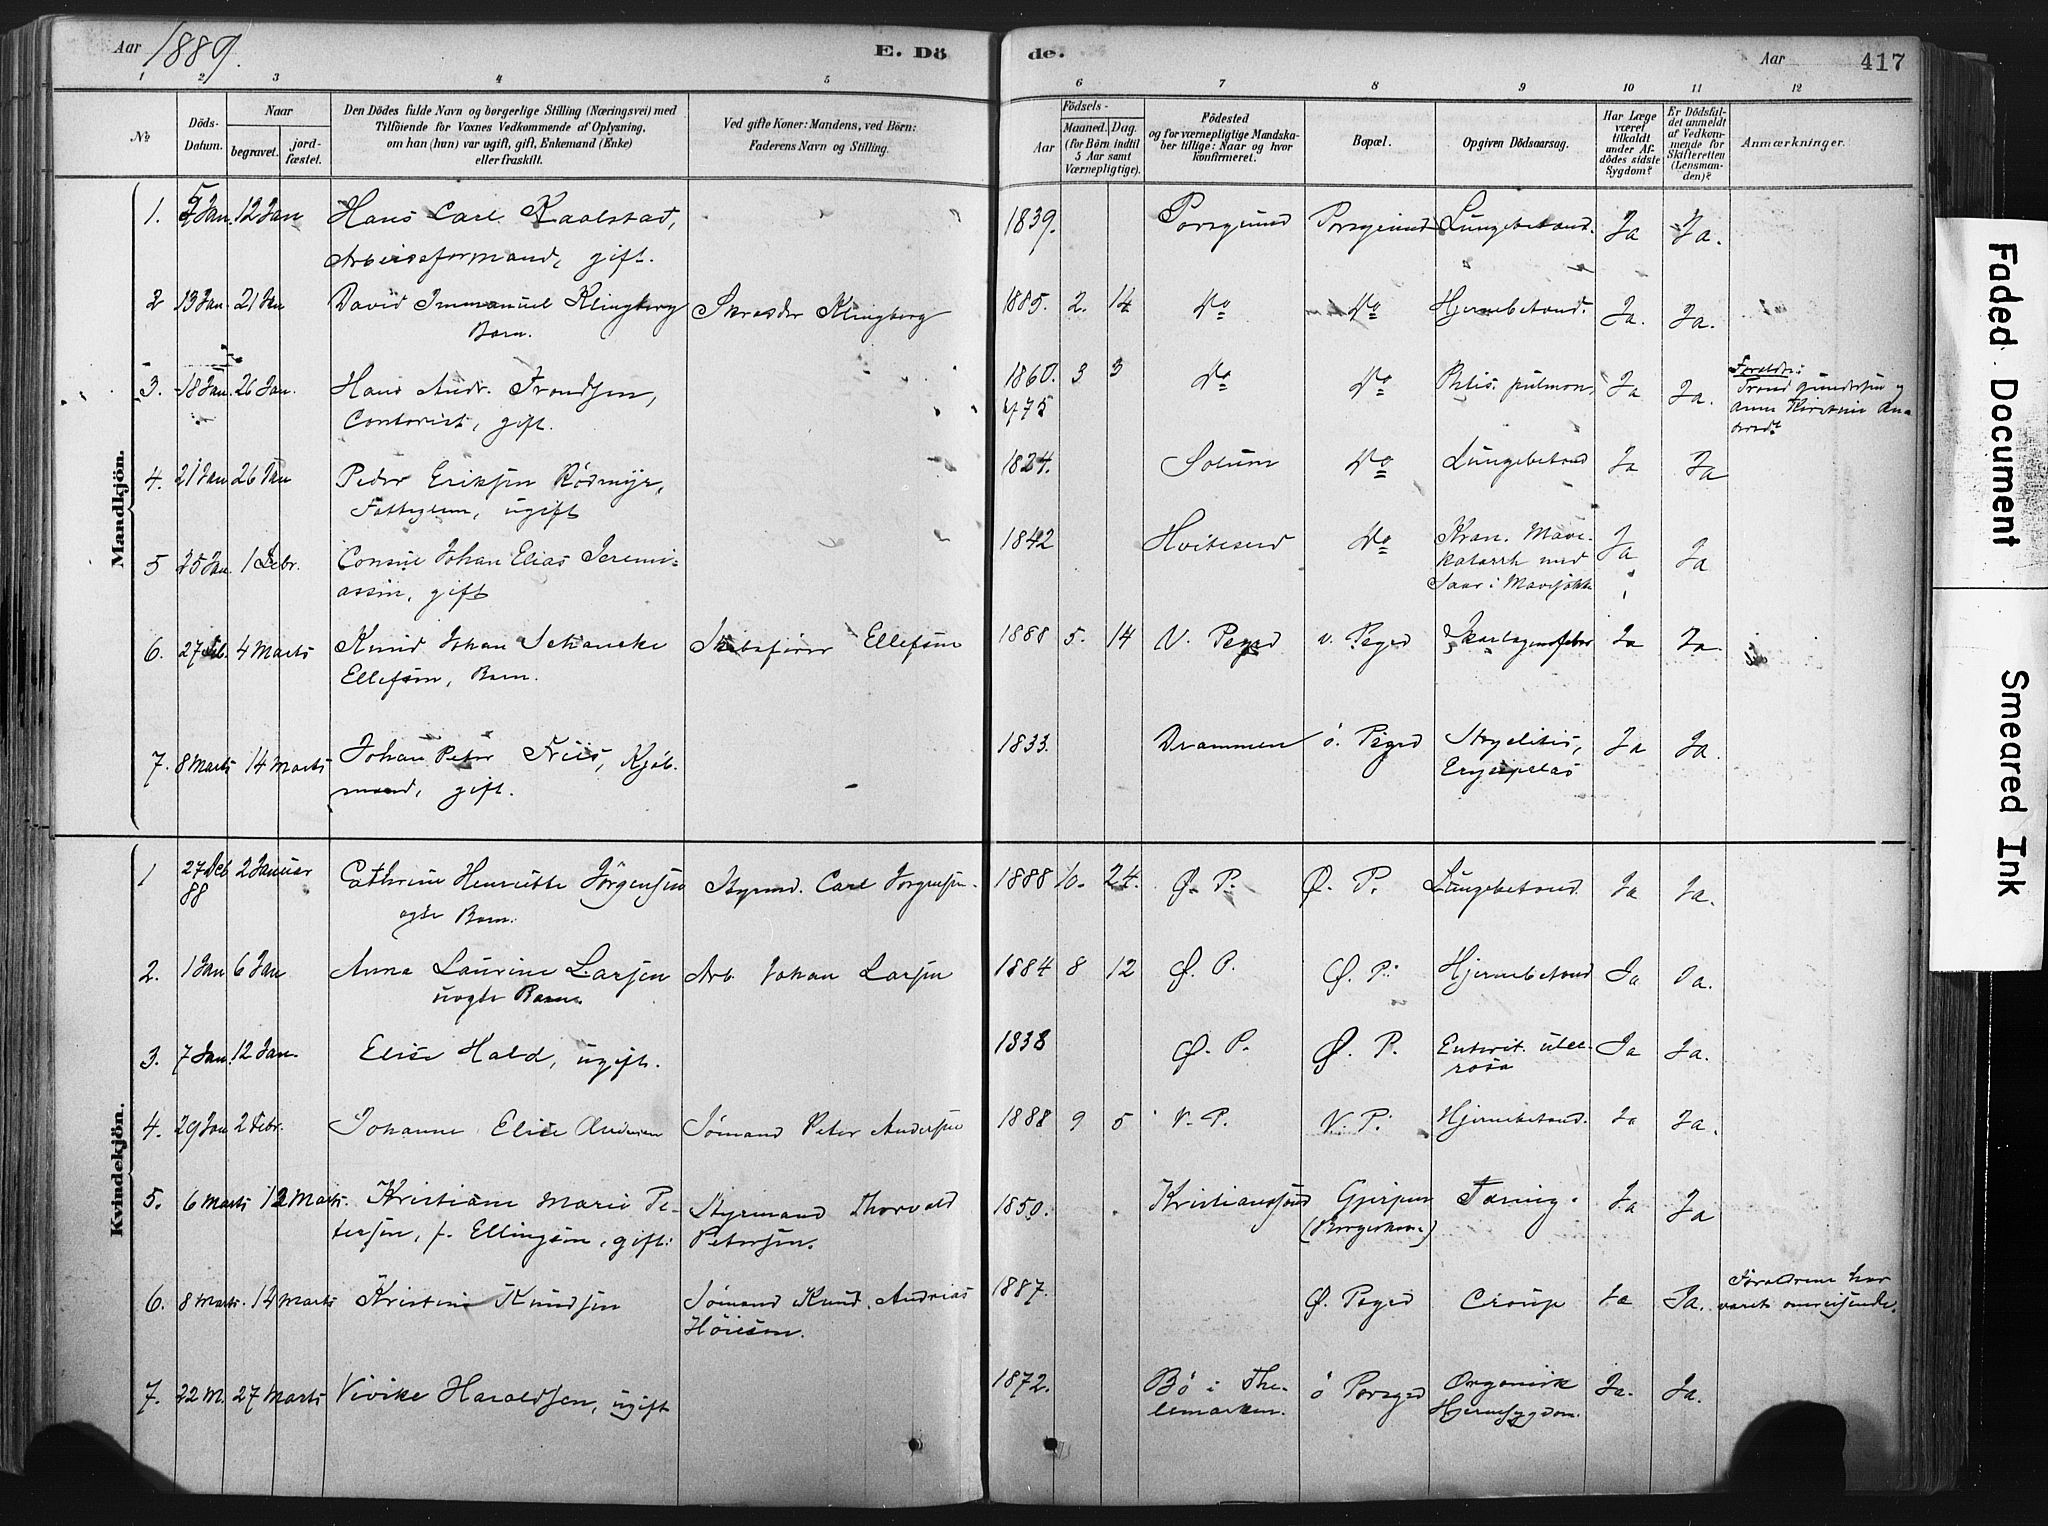 Aar 1889.
E. Dö
de.
Aar
417
1 2 3 4 5 6 7 8 9 10 11 12
№
Döds-Datum.
Naar
begravet.
jord-fæstet.
Den Dödes fulde Navn og borgerlige Stilling (Næringsvei) med
Tilföiende for Voxnes Vedkommende af Oplysning,
om han (hun) var ugift, gift, Enkemand (Enke)
eller fraskilt.
Ved gifte Koner: Mandens, ved Börn:
Faderens Navn og Stilling.
Födsels-
Aar
Maaned. Dag.
(for Börn indtil
5 Aar samt
Værnepligtige).
Födested
og for værnepligtige Mandska-
ber tillige: Naar og hvor
konfirmeret.
Bopæl.
Opgiven Dödsaarsag.
Har Læge
været
tilkaldt
under Af-
dödes sidste
Sygdom?
Er Dödsfal-
det anmeldt
af Vedkom-
mende for
Skifteretten
(Lensman-
den)?
Anmærkninger.
Mandkjön.
1. 5 Jan. 12 Jan Hans Carl Raalstad, 1839. Porsgrund Porsgrund Lungebetænd. Ja Ja.
Arbeidsformand, gift.
2 13 Jan 21 Jan David Immanuel Klingberg Skræder Klingberg 1885. 2. 14 Do Do Hjernebetænd. Ja. Ja.
Barn.
3. 18 Jan. 26 Jan. Hans Andr. Trondsen, 1860. 3 3 Do Do Phtis. pulmon. Ja Ja. Forældre:
Contorist, gift. kf 75 Trond Gundersen og
Anna Kirstine
4. 21 Jan 26 Jan Peder Eriksen Rødmyr, 1824. Solum Do Lungebetænd Ja Ja
Fattiglem, ugift
5 25 Jan. 1 Febr. Consul Johan Elias Jeremi- 1842 Hviteseid Do Kron. Mave- Ja Ja
assen, gift katarrh med
Saar i Mavesækk
6. 27 Feb. 4 Marts Knud Johan Schanche Skibsfører Ellefsen 1888 5. 14 V. Psgrd v. Psgrd Skarlagensfeber Ja Ja.
Ellefsen, Barn.
7. 8 Marts 14 Marts Johan Peter Friis, Kjøb- 1833. Drammen ö. Psgrd Myelitis, Ja Ja.
mand, gift. Erysipelas
Kvindekjön.
1 27 Deb 88 2 Januar Cathrine Henriette Jörgensen Styrmd. Carl Jorgensen. 1888 10. 24. Ø. P. Ø. P. Lungebetænd. Ja Ja.
ægte Barn.
2. 1 Jan 6 Jan Anna Laurine Larsen Arb Johan Larsen 1884 8 12 Ø. P. Ø. P. Hjernebetænd Ja Ja.
uægte Barn.
3. 7 Jan. 12 Jan. Elise Hald, ugift. 1838 Ø. P. Ø. P. Enterit. ulce- Ja Ja.
rosa
4. 29 Jan 2 Febr. Johanne Elise Andersen Sømand Peter Andersen 1888 9 5 V. P. V. P. Hjernebetænd. Ja Ja.
5. 6 Marts 12 Marts. Kristiane Marie Pe- Styrmand Thorvald 1850. Kristianssund Gjerpen Tæring. Ja Ja
tersen, f. Ellingsen, gift. Petersen. (Borgerhaven)
6. 8 Marts. 14 Marts Kristine Knudsen Sømand Knud Andreas 1887. Ø. Psgrd Croup Ja Ja. Forældrene har
Høiesen. været omreisende.
7. 22 M. 27 Marts Vivike Haraldsen, ugift 1872. Bö i The- ö Porsgrd Organisk Ja. Ja.
lemarken. Hjernesygdom.
Faded Document
Smeared Ink